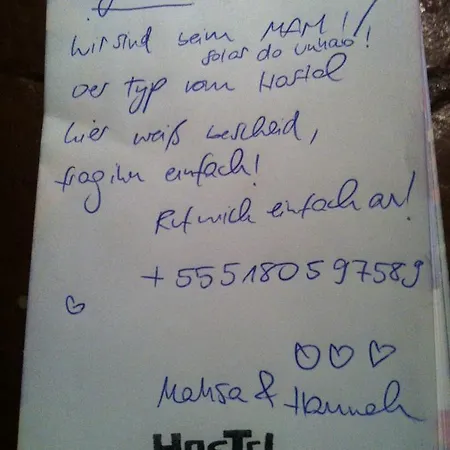 Wir sind beim MAM!!
solar do unhao!
Der Typ vom Hostel
hier weiß bescheid,
frag ihn einfach!
Ruf mich einfach an!
+555180597589
Mahsa & Hannah
HOSTEL